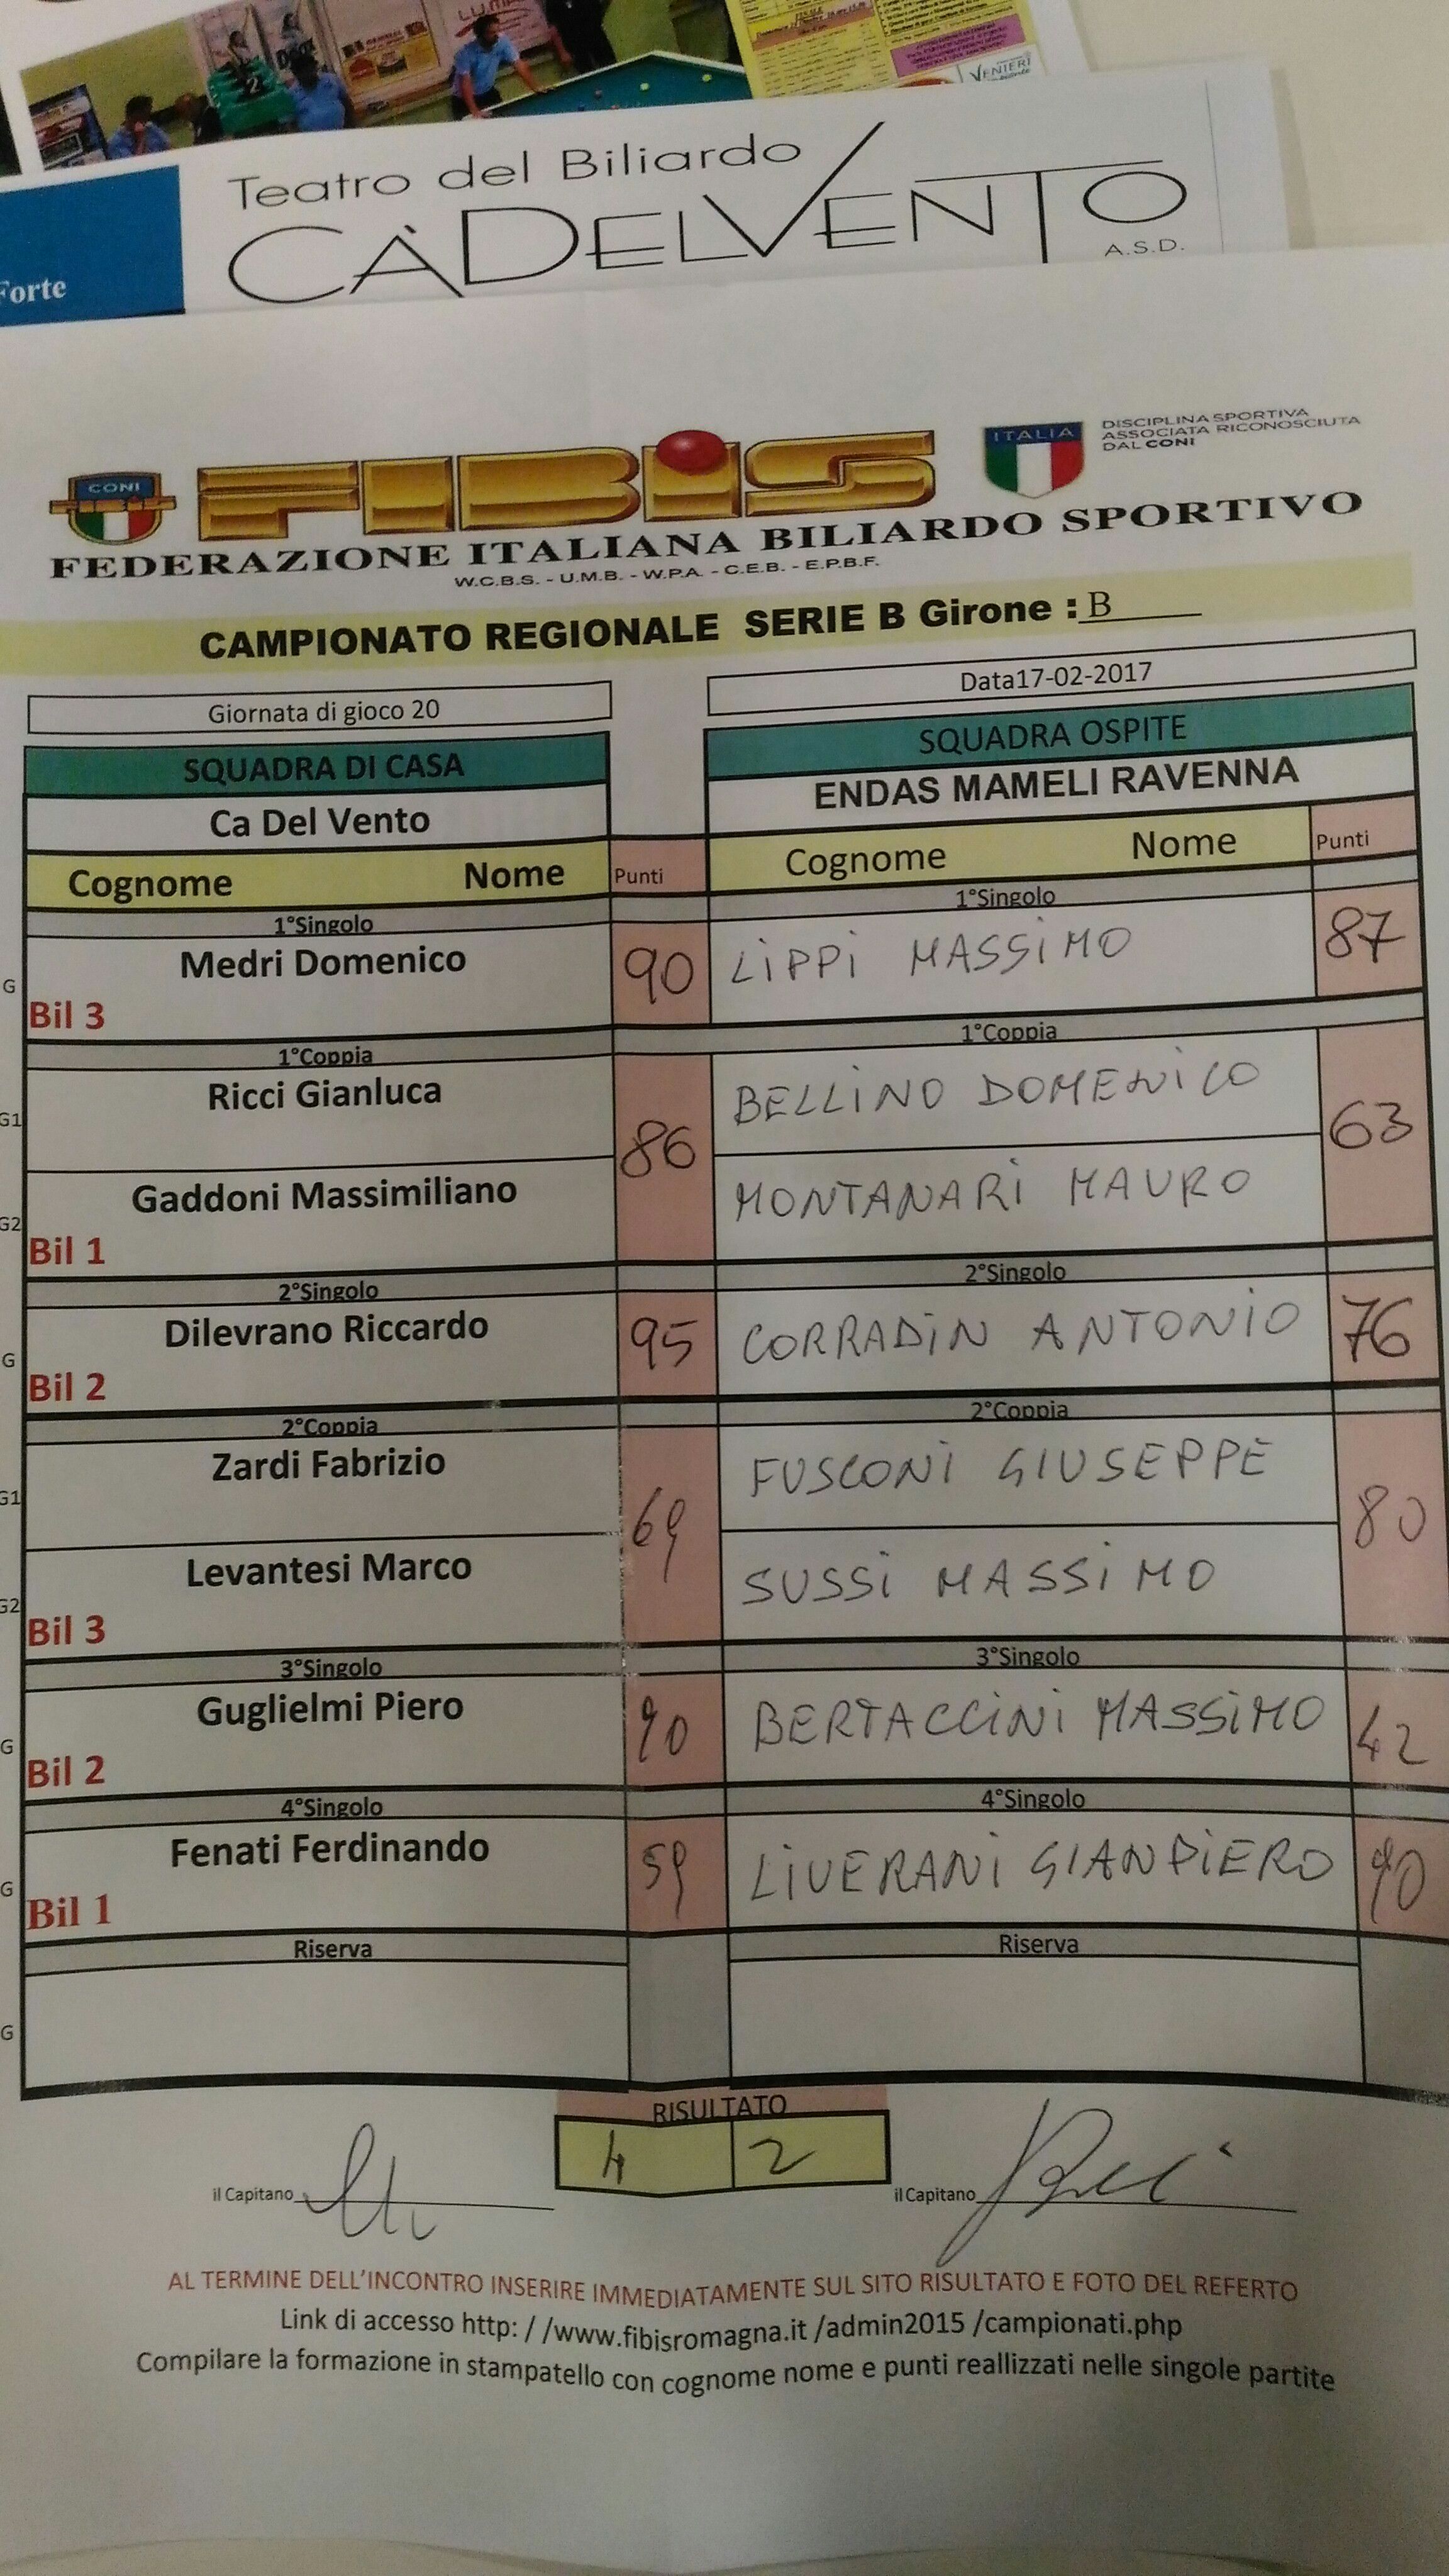 VENIERI
Teatro del Biliardo
CÀDELVENTO
A.S.D.
Forte
CONI
FIBiS
ITALIA
DISCIPLINA SPORTIVA
ASSOCIATA RICONOSCIUTA
DAL CONI
FEDERAZIONE ITALIANA BILIARDO SPORTIVO
W.C.B.S. - U.M.B. - W.P.A. - C.E.B. - E.P.B.F.
CAMPIONATO REGIONALE SERIE B Girone : B
Giornata di gioco 20 Data17-02-2017
SQUADRA DI CASA SQUADRA OSPITE
Ca Del Vento ENDAS MAMELI RAVENNA
Cognome Nome Punti Cognome Nome Punti
1°Singolo 1°Singolo
G Medri Domenico 90 LIPPI MASSIMO 87
Bil 3
1°Coppia 1°Coppia
G1 Ricci Gianluca 86 BELLINO DOMENICO 63
G2 Gaddoni Massimiliano MONTANARI MAURO
Bil 1
2°Singolo 2°Singolo
G Dilevrano Riccardo 95 CORRADIN ANTONIO 76
Bil 2
2°Coppia 2°Coppia
G1 Zardi Fabrizio 69 FUSCONI GIUSEPPE 80
G2 Levantesi Marco SUSSI MASSIMO
Bil 3
3°Singolo 3°Singolo
G Guglielmi Piero 90 BERTACCINI MASSIMO 42
Bil 2
4°Singolo 4°Singolo
G Fenati Ferdinando 59 LIVERANI GIANPIERO 90
Bil 1
Riserva Riserva
G
RISULTATO
4 2
il Capitano il Capitano
AL TERMINE DELL'INCONTRO INSERIRE IMMEDIATAMENTE SUL SITO RISULTATO E FOTO DEL REFERTO
Link di accesso http: / /www.fibisromagna.it /admin2015 /campionati.php
Compilare la formazione in stampatello con cognome nome e punti reallizzati nelle singole partite